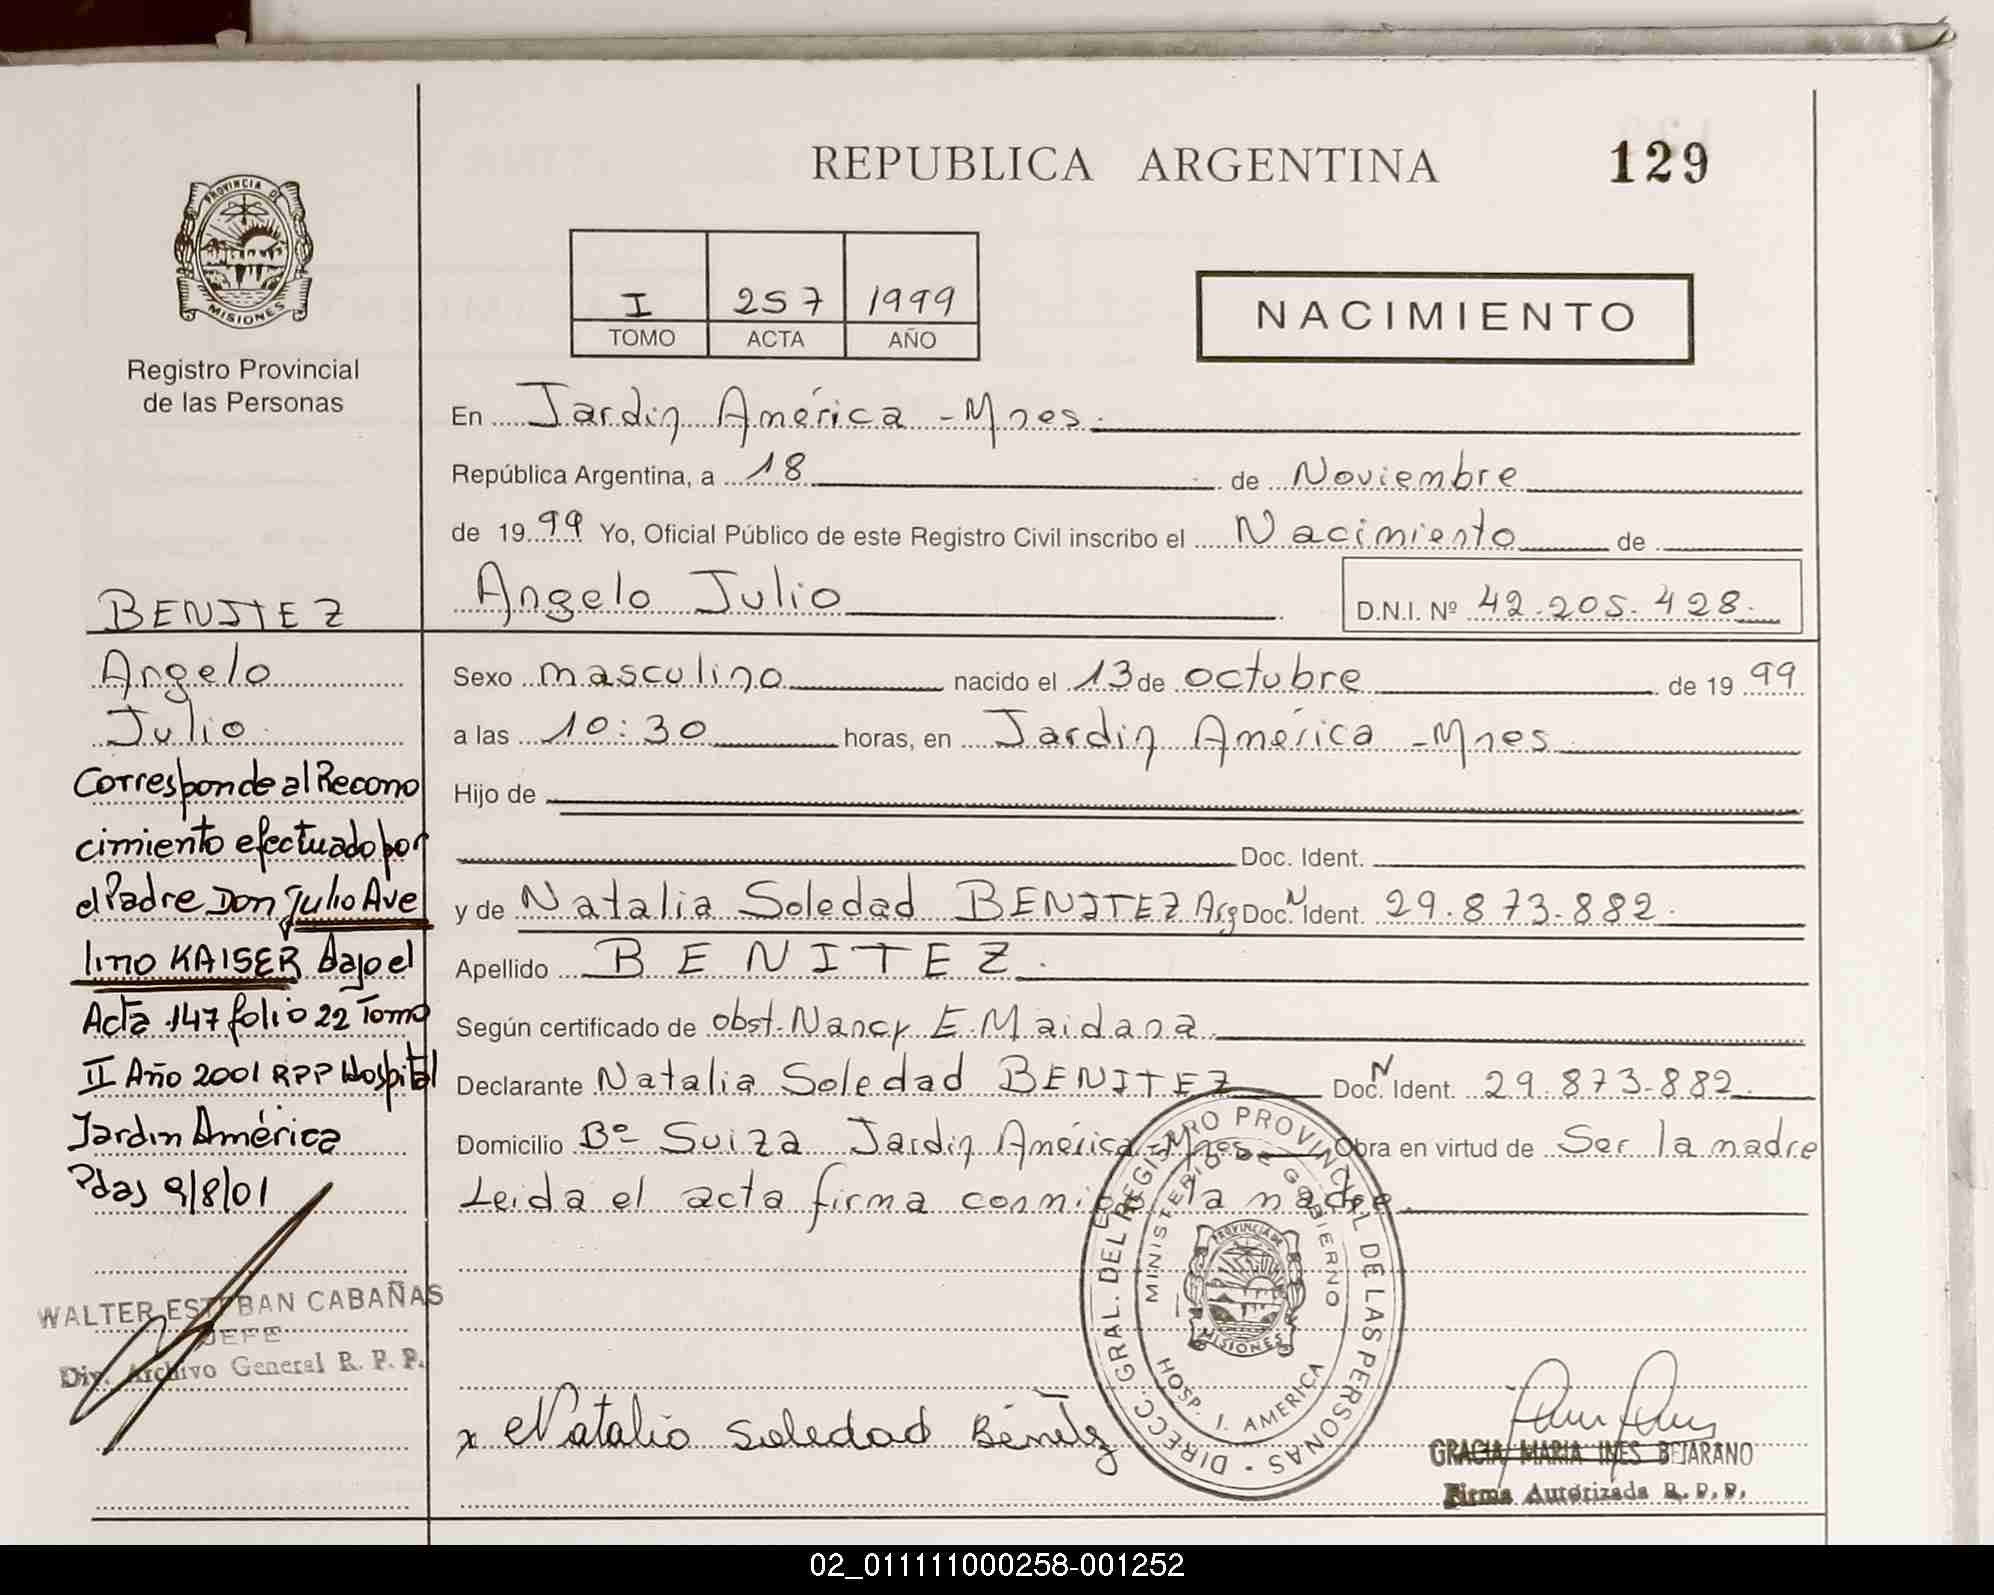 REPUBLICA ARGENTINA
129
PROVINCIA DE
MISIONES
Registro Provincial
de las Personas
I 257 1999
TOMO ACTA AÑO
NACIMIENTO
En Jardín América - Mnes.
República Argentina, a 18 de Noviembre
de 1999 Yo, Oficial Público de este Registro Civil inscribo el Nacimiento de
Angelo Julio
D.N.I. Nº 42.205.428.
BENITEZ
Angelo
Julio
Corresponde al Recono
cimiento efectuado por
el Padre Don Julio Ave
lino KAISER bajo el
Acta 147 folio 22 Tomo
II Año 2001 RPP Hospital
Jardin América
Pdas 9/8/01
WALTER ESTEBAN CABAÑAS
JEFE
Div. Archivo General R. P. P.
Sexo masculino nacido el 13 de octubre de 1999
a las 10:30 horas, en Jardín América - Mnes
Hijo de
Doc. Ident.
y de Natalia Soledad BENITEZ Arg Doc. N Ident. 29.873.882.
Apellido BENITEZ.
Según certificado de obst. Nancy E. Maidana
Declarante Natalia Soledad BENITEZ Doc. N Ident. 29.873.882.
Domicilio Bº Suiza Jardín América - Mnes Obra en virtud de Ser la madre
Leida el acta firma conmigo la madre
DIRECC. GRAL. DEL REGISTRO PROVINCIAL DE LAS PERSONAS
MINISTERIO DE GOBIERNO
PROVINCIA DE
MISIONES
HOSP. J. AMERICA
x Natalia Soledad Bénitz
GRACIA MARIA INES BEJARANO
Firma Autorizada R. P. P.
02_011111000258-001252